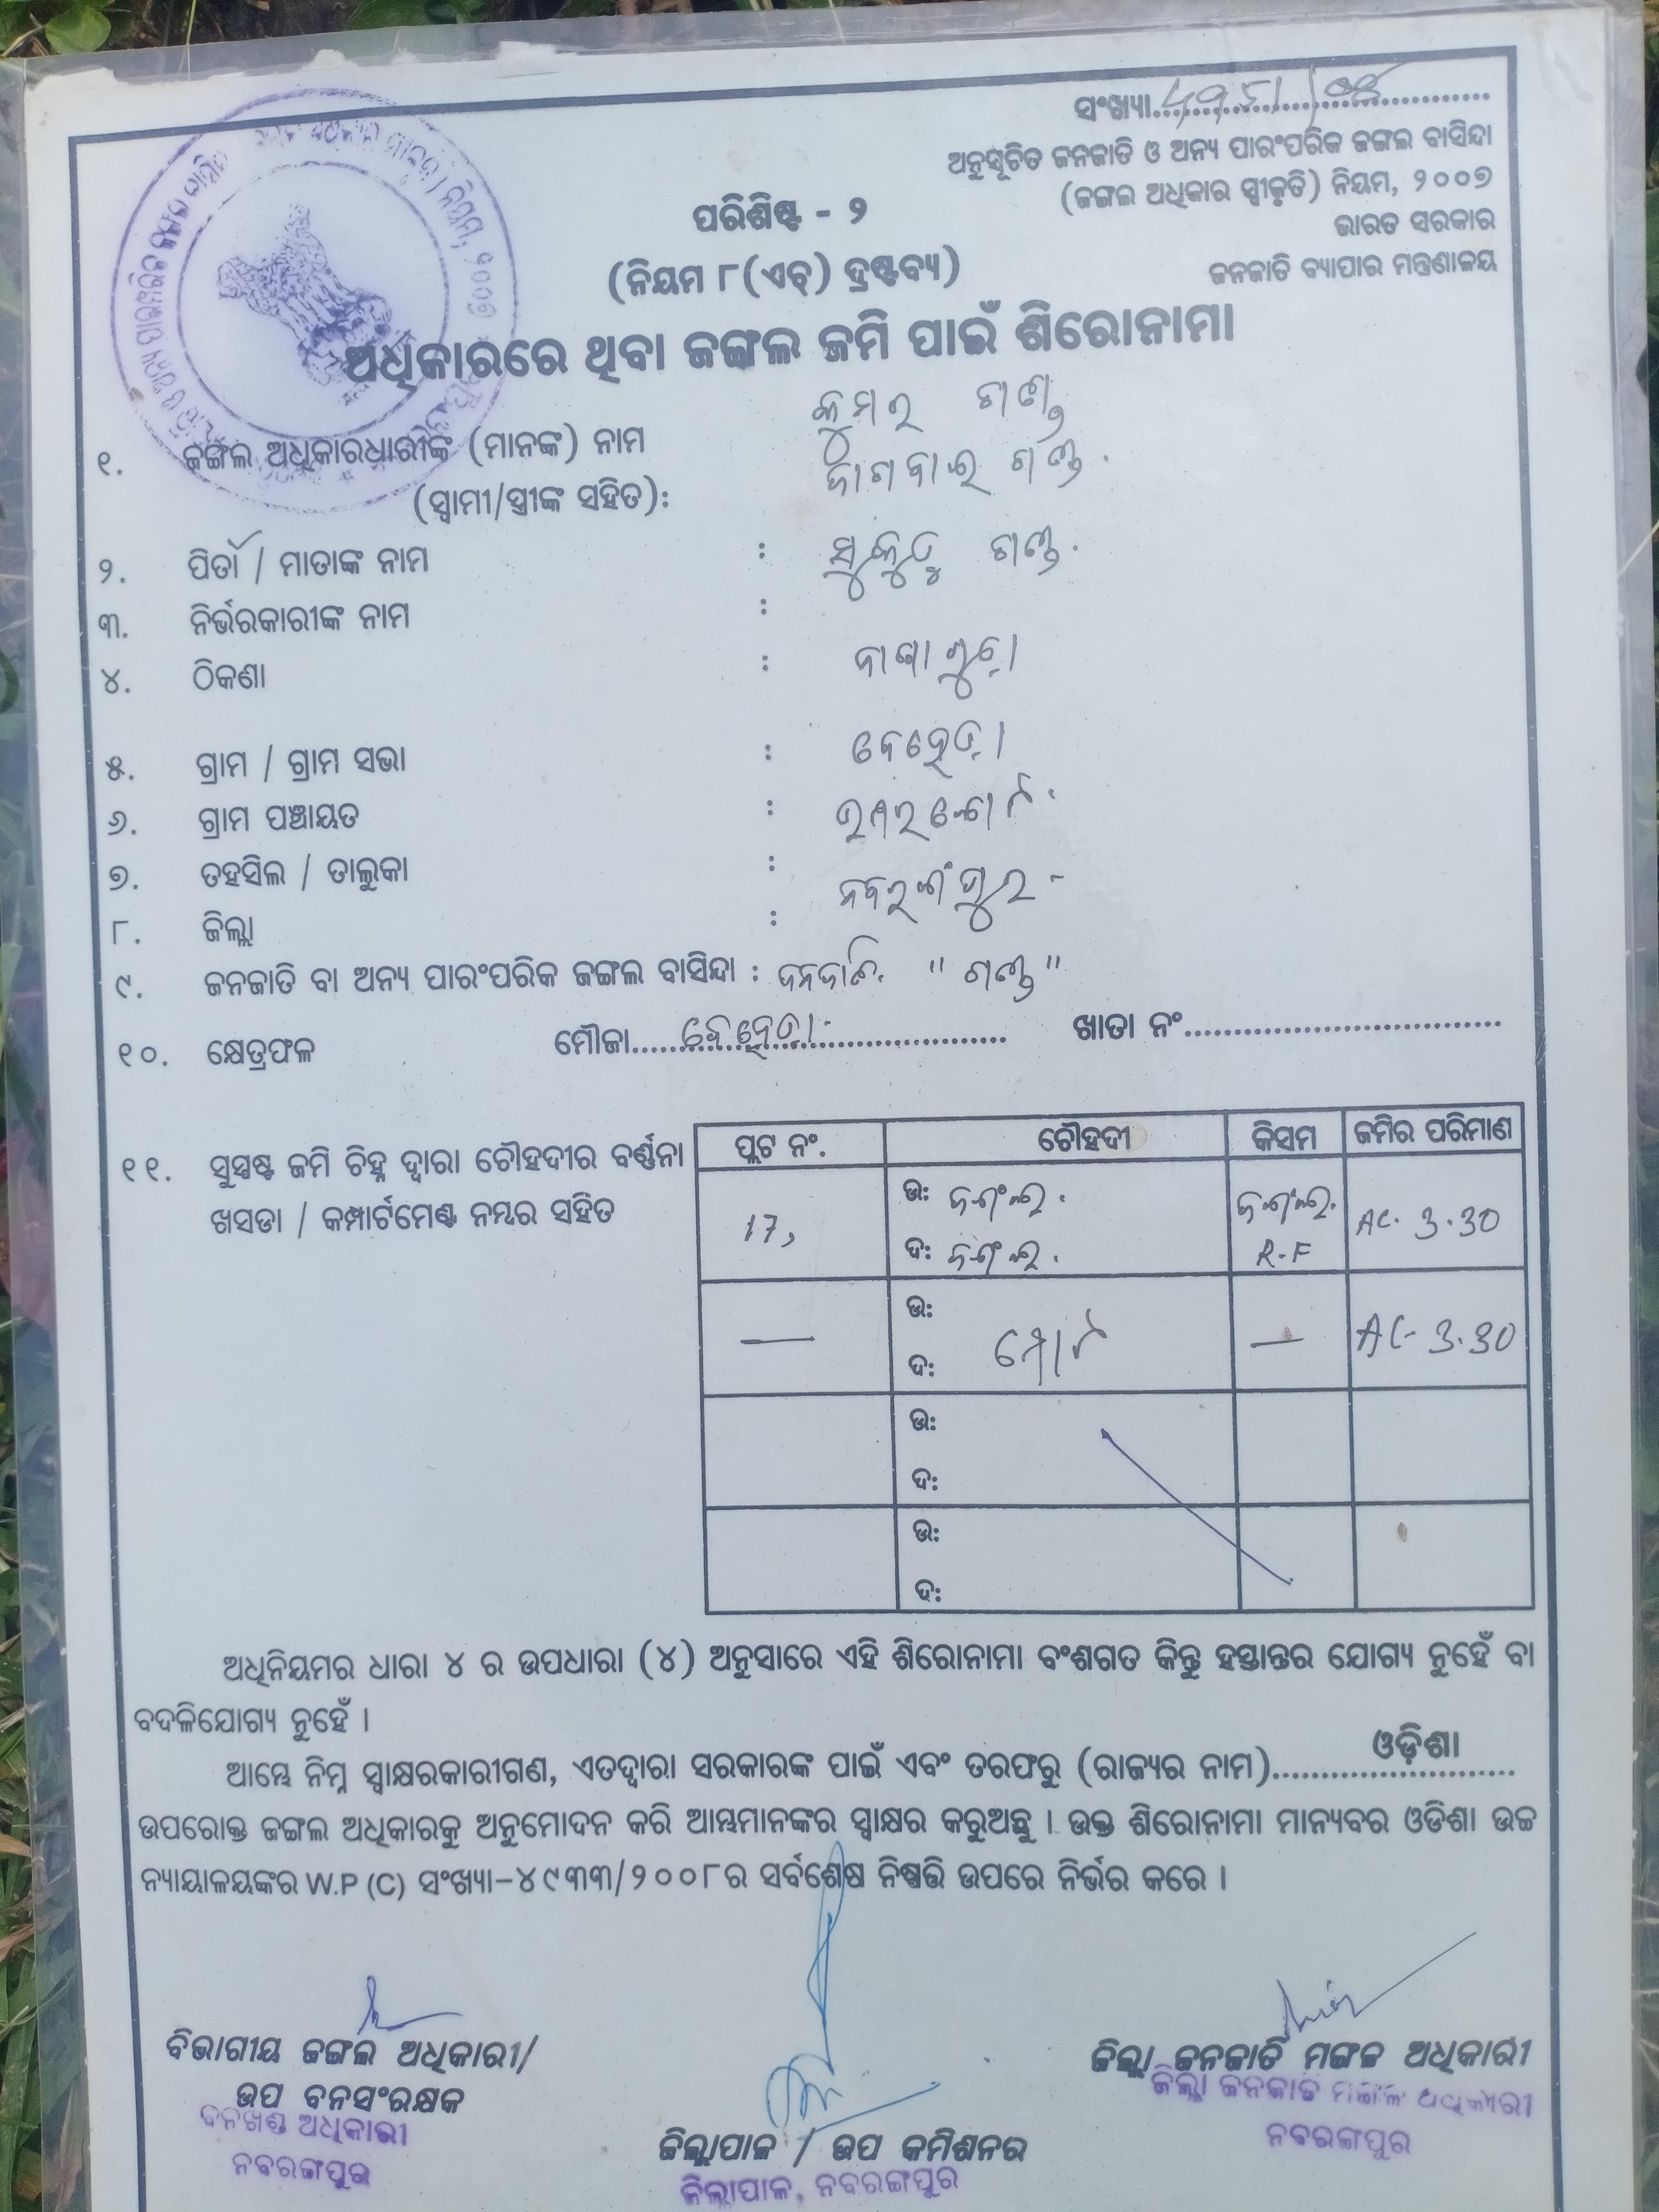 ସଂଖ୍ୟା
ଅନୁସୂଚିତ ଜନଜାତି ଓ ଅନ୍ୟ ପାରଂପରିକ ଜଙ୍ଗଲ ବାସିନ୍ଦା
(ଜଙ୍ଗଲ ଅଧିକାର ସ୍ୱୀକୃତି) ନିୟମ, ୨୦୦୭
ଭାରତ ସରକାର
ଜନଜାତି ବ୍ୟାପାର ମନ୍ତ୍ରଣାଳୟ
ପରିଶିଷ୍ଟ - ୨
(ନିୟମ ୮(ଏଚ୍) ଦ୍ରଷ୍ଟବ୍ୟ)
ଅଧିକାରରେ ଥିବା ଜଙ୍ଗଲ ଜମି ପାଇଁ ଶିରୋନାମା
୧. ଜଙ୍ଗଲ ଅଧିକାରଧାରୀଙ୍କ (ମାନଙ୍କ) ନାମ କୁମର ଗଣ୍ଡ
(ସ୍ୱାମୀ/ସ୍ତ୍ରୀଙ୍କ ସହିତ): ଗଣ୍ଡ
୨. ପିତା / ମାତାଙ୍କ ନାମ : ଗଣ୍ଡ
୩. ନିର୍ଭରକାରୀଙ୍କ ନାମ :
୪. ଠିକଣା :
୫. ଗ୍ରାମ / ଗ୍ରାମ ସଭା :
୬. ଗ୍ରାମ ପଞ୍ଚାୟତ :
୭. ତହସିଲ / ତାଲୁକା :
୮. ଜିଲ୍ଲା : ନବରଂଗପୁର
୯. ଜନଜାତି ବା ଅନ୍ୟ ପାରଂପରିକ ଜଙ୍ଗଲ ବାସିନ୍ଦା : ଜନଜାତି "ଗଣ୍ଡ"
୧୦. କ୍ଷେତ୍ରଫଳ ମୌଜା ଖାତା ନଂ
୧୧. ସୁସ୍ପଷ୍ଟ ଜମି ଚିହ୍ନ ଦ୍ୱାରା ଚୌହଦୀର ବର୍ଣ୍ଣନା
ଖସଡା / କମ୍ପାର୍ଟମେଣ୍ଟ ନମ୍ବର ସହିତ
ପ୍ଲଟ ନଂ. ଚୌହଦୀ କିସମ ଜମିର ପରିମାଣ
17, ଉ: ଜଂଗଲ ଜଂଗଲ AC. 3.30
ଦ: ଜଂଗଲ R.F
— ଉ: — AC- 3.30
ଦ: ମୋଟ
ଉ:
ଦ:
ଉ:
ଦ:
ଅଧିନିୟମର ଧାରା ୪ ର ଉପଧାରା (୪) ଅନୁସାରେ ଏହି ଶିରୋନାମା ବଂଶଗତ କିନ୍ତୁ ହସ୍ତାନ୍ତର ଯୋଗ୍ୟ ନୁହେଁ ବା
ବଦଳିଯୋଗ୍ୟ ନୁହେଁ ।
ଆମ୍ଭେ ନିମ୍ନ ସ୍ୱାକ୍ଷରକାରୀଗଣ, ଏତଦ୍ୱାରା ସରକାରଙ୍କ ପାଇଁ ଏବଂ ତରଫରୁ (ରାଜ୍ୟର ନାମ) ଓଡ଼ିଶା
ଉପରୋକ୍ତ ଜଙ୍ଗଲ ଅଧିକାରକୁ ଅନୁମୋଦନ କରି ଆମ୍ଭମାନଙ୍କର ସ୍ୱାକ୍ଷର କରୁଅଛୁ । ଉକ୍ତ ଶିରୋନାମା ମାନ୍ୟବର ଓଡିଶା ଉଚ୍ଚ
ନ୍ୟାୟାଳୟଙ୍କର W.P (C) ସଂଖ୍ୟା-୪୯୩୩/୨୦୦୮ର ସର୍ବଶେଷ ନିଷ୍ପତ୍ତି ଉପରେ ନିର୍ଭର କରେ ।
ବିଭାଗୀୟ ଜଙ୍ଗଲ ଅଧିକାରୀ/
ଉପ ବନସଂରକ୍ଷକ
ବନଖଣ୍ଡ ଅଧିକାରୀ
ନବରଙ୍ଗପୁର
ଜିଲ୍ଲାପାଳ / ଉପ କମିଶନର
ଜିଲ୍ଲାପାଳ, ନବରଙ୍ଗପୁର
ଜିଲ୍ଲା ଜନଜାତି ମଙ୍ଗଳ ଅଧିକାରୀ
ଜିଲ୍ଲା ଜନଜାତି ମଙ୍ଗଳ ଅଧିକାରୀ
ନବରଙ୍ଗପୁର